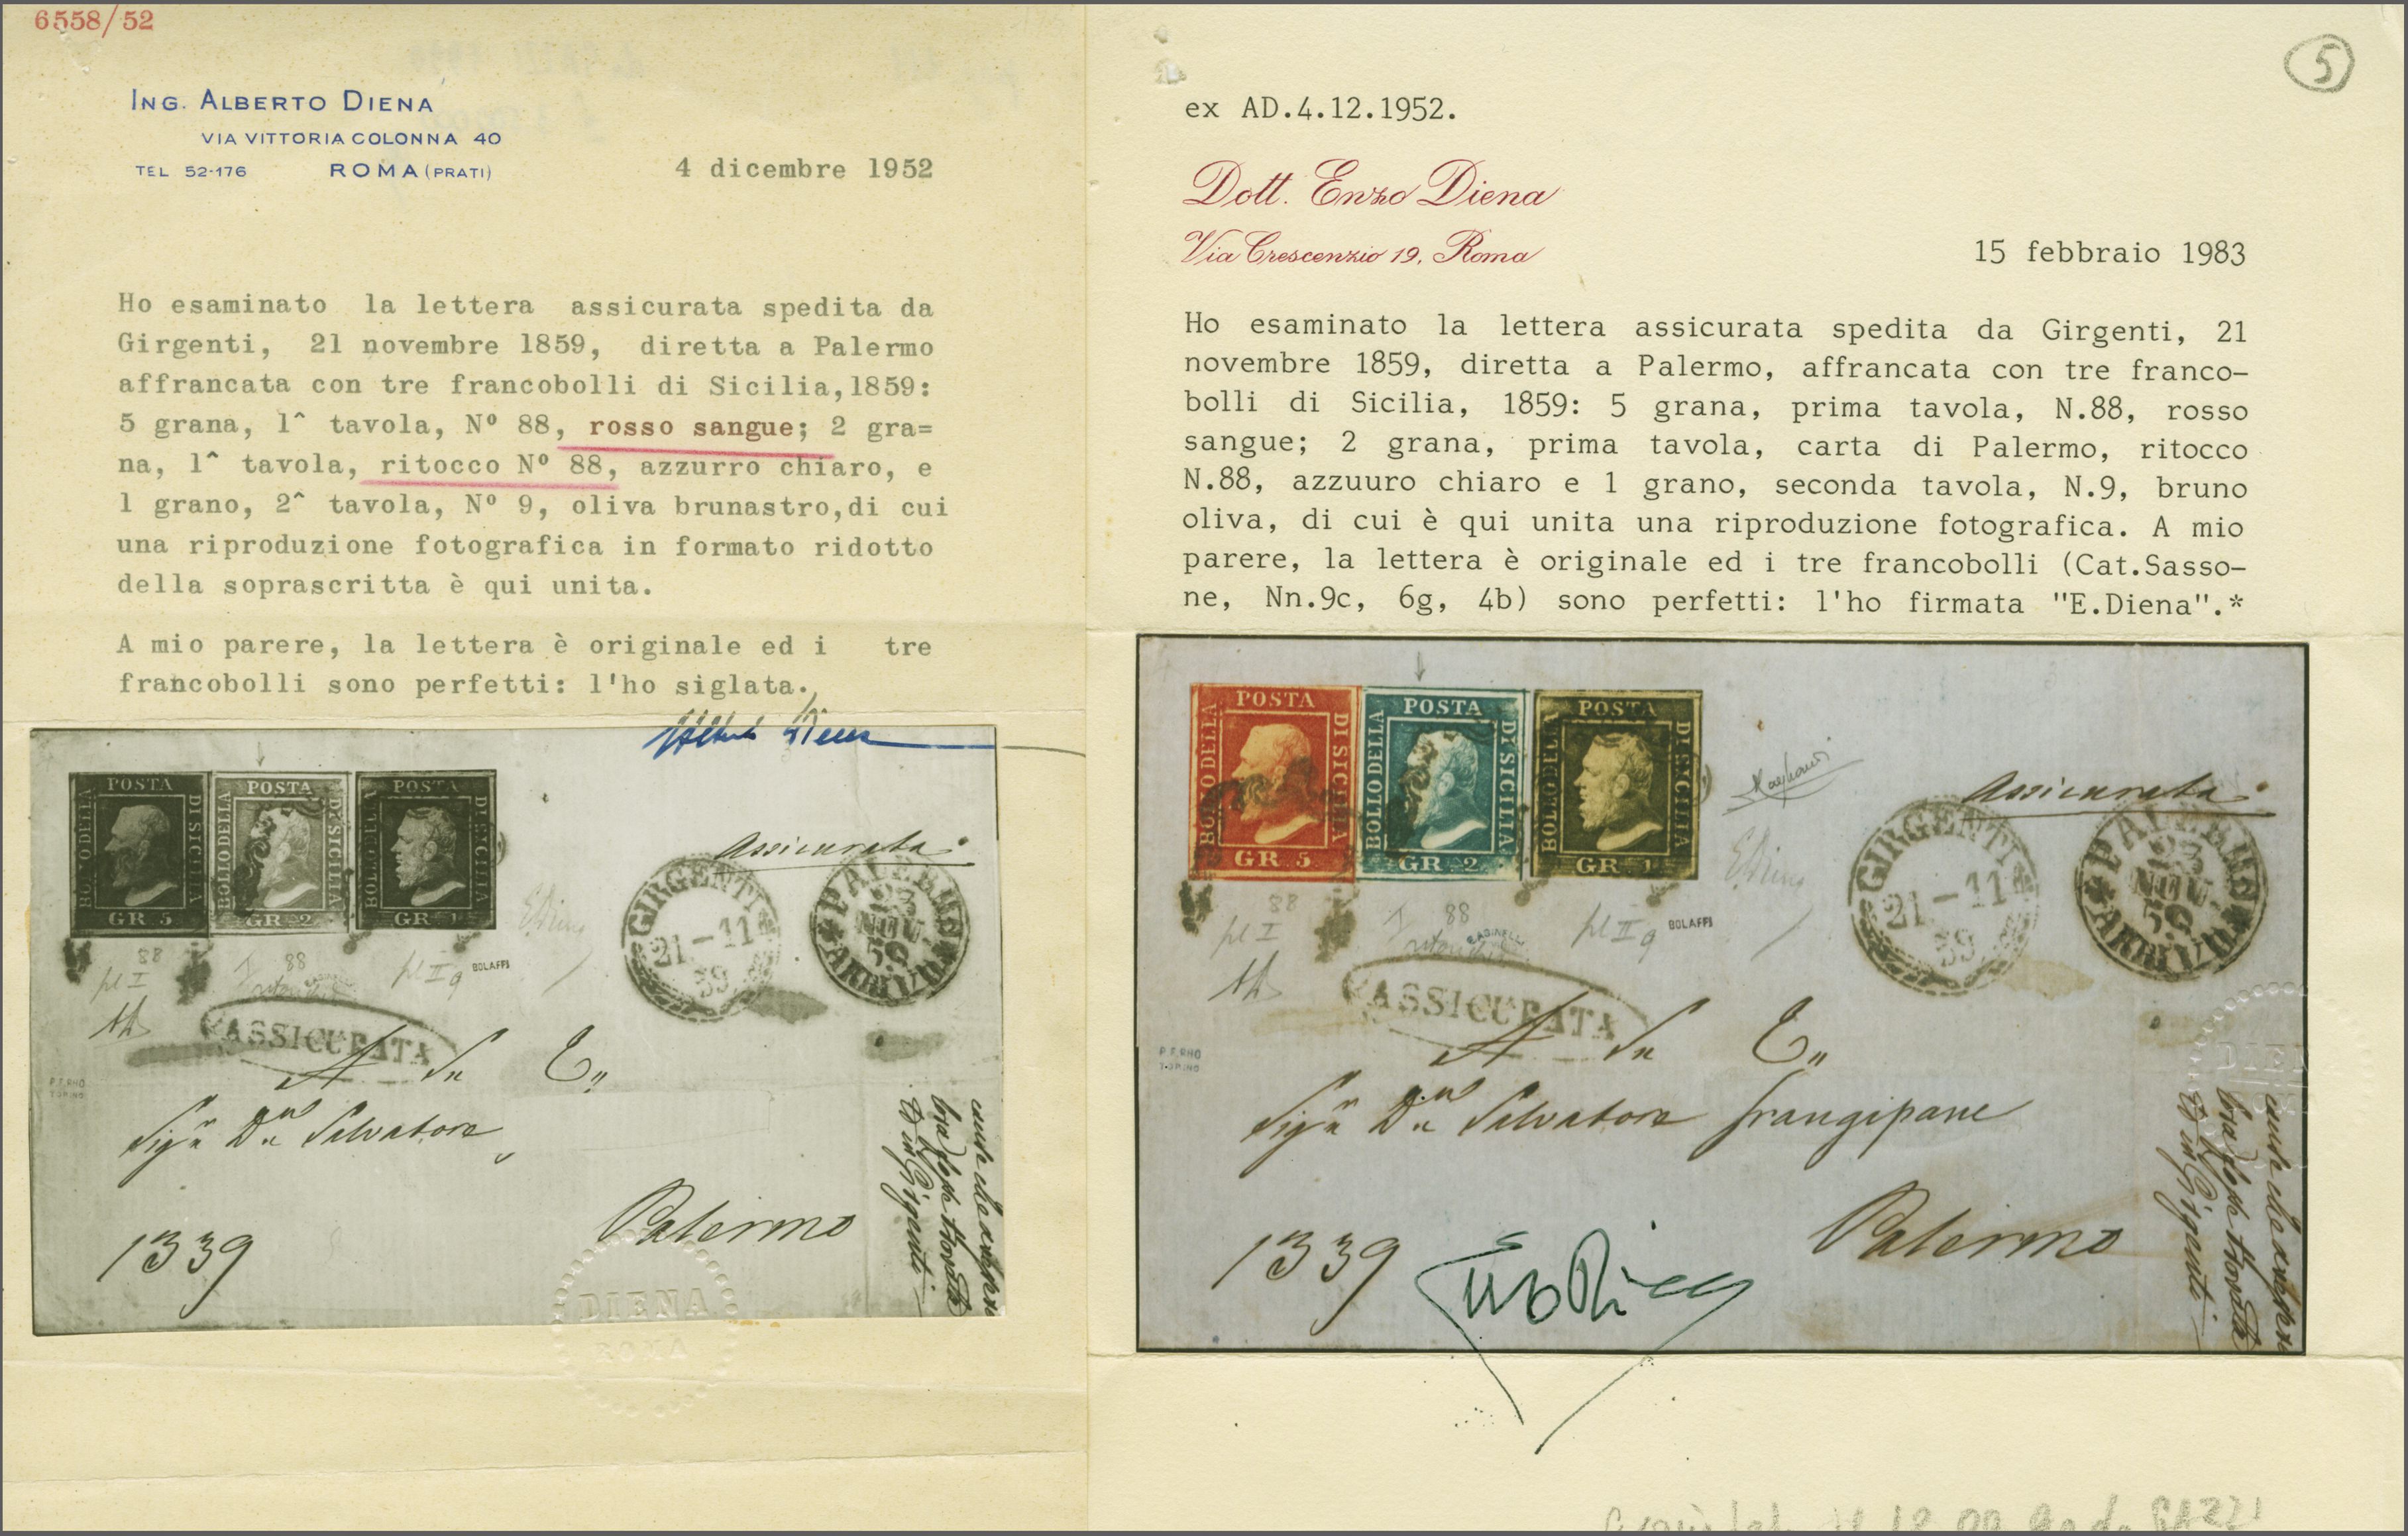 6558/52
ING. ALBERTO DIENA
VIA VITTORIA COLONNA 40
TEL 52-176 ROMA (PRATI)
4 dicembre 1952
Ho esaminato la lettera assicurata spedita da
Girgenti, 21 novembre 1859, diretta a Palermo
affrancata con tre francobolli di Sicilia,1859:
5 grana, 1^ tavola, Nº 88, rosso sangue; 2 gra=
na, 1^ tavola, ritocco Nº 88, azzurro chiaro, e
1 grano, 2^ tavola, Nº 9, oliva brunastro,di cui
una riproduzione fotografica in formato ridotto
della soprascritta è qui unita.
A mio parere, la lettera è originale ed i tre
francobolli sono perfetti: l'ho siglata.
Alberto Diena
POSTA
BOLLO DELLA
DI SICILIA
GR 5
POSTA
BOLLO DELLA
DI SICILIA
GR 2
POSTA
BOLLO DELLA
DI SICILIA
GR 1
Assicurata
GIRGENTI
21-11
59
PALERMO
23
NOV
59
ARRIVO
88
pl I
88
pl II 9
BOLAFFI
E. Diena
AD
ASSICURATA
P.T.RHO
TORINO
A Sn E
Sigr Dn Salvatore
Palermo
1339
in Girgenti
DIENA
ROMA
5
ex AD.4.12.1952.
Dott. Enzo Diena
Via Crescenzio 19, Roma
15 febbraio 1983
Ho esaminato la lettera assicurata spedita da Girgenti, 21
novembre 1859, diretta a Palermo, affrancata con tre franco-
bolli di Sicilia, 1859: 5 grana, prima tavola, N.88, rosso
sangue; 2 grana, prima tavola, carta di Palermo, ritocco
N.88, azzuuro chiaro e 1 grano, seconda tavola, N.9, bruno
oliva, di cui è qui unita una riproduzione fotografica. A mio
parere, la lettera è originale ed i tre francobolli (Cat.Sasso-
ne, Nn.9c, 6g, 4b) sono perfetti: l'ho firmata "E.Diena".*
POSTA
BOLLO DELLA
DI SICILIA
GR 5
POSTA
BOLLO DELLA
DI SICILIA
GR 2
POSTA
BOLLO DELLA
DI SICILIA
GR 1
Assicurata
GIRGENTI
21-11
59
PALERMO
23
NOV
59
ARRIVO
E. Diena
88
pl I
88
pl II 9
BOLAFFI
AD
ASSICURATA
P.T.RHO
TORINO
A Sn E
Sigr Dn Salvatore Frangipane
Palermo
1339
in Girgenti
Enzo Diena